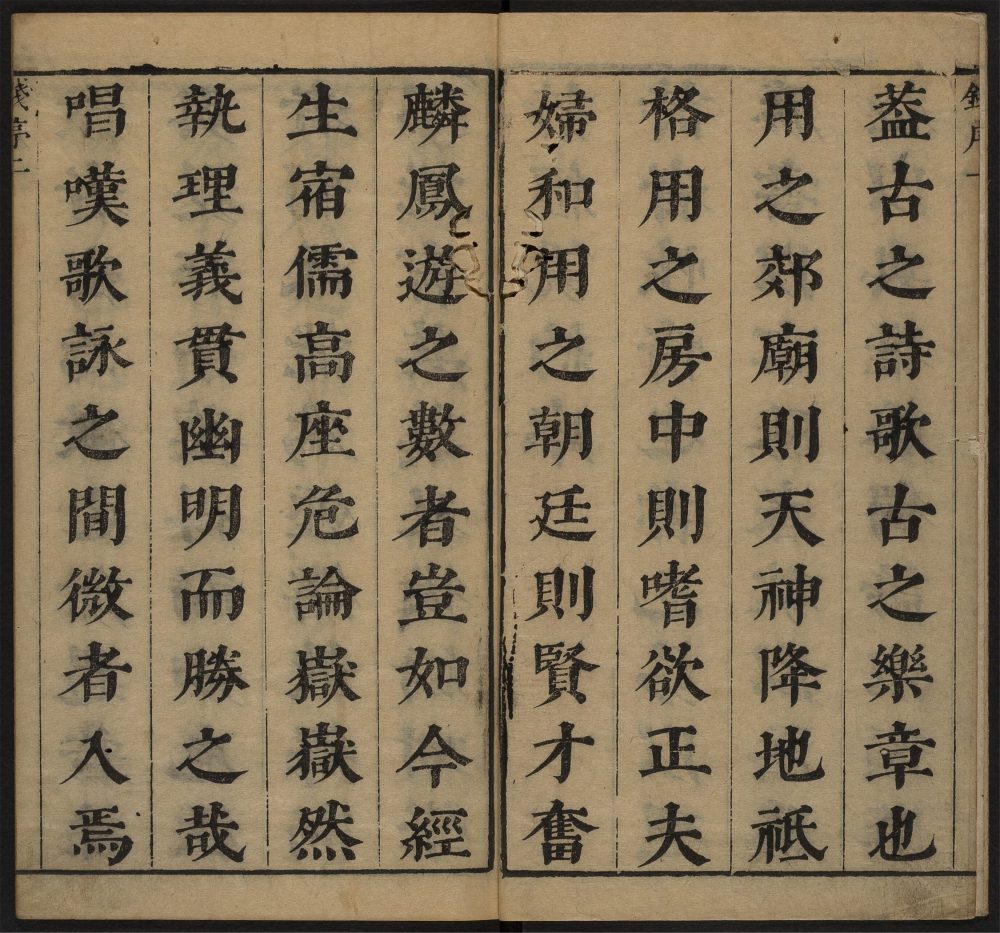 葢古之詩歌古之樂章也
用之郊廟則天神降地祗
格用之房中則嗜欲正夫
婦和用之朝廷則賢才奮
麟鳳遊之數者豈如今經
生宿儒高座危論嶽嶽然
執理義貫幽明而勝之哉
唱嘆歌詠之間微者入焉